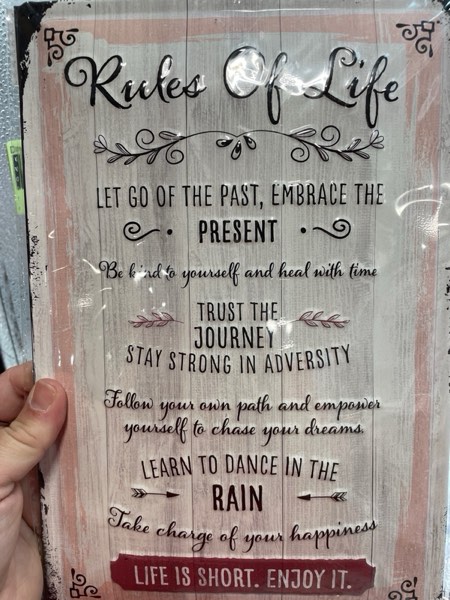 Rules Of Life
LET GO OF THE PAST, EMBRACE THE
PRESENT
Be kind to yourself and heal with time
TRUST THE
JOURNEY
STAY STRONG IN ADVERSITY
Follow your own path and empower
yourself to chase your dreams.
LEARN TO DANCE IN THE
RAIN
Take charge of your happiness
LIFE IS SHORT. ENJOY IT.